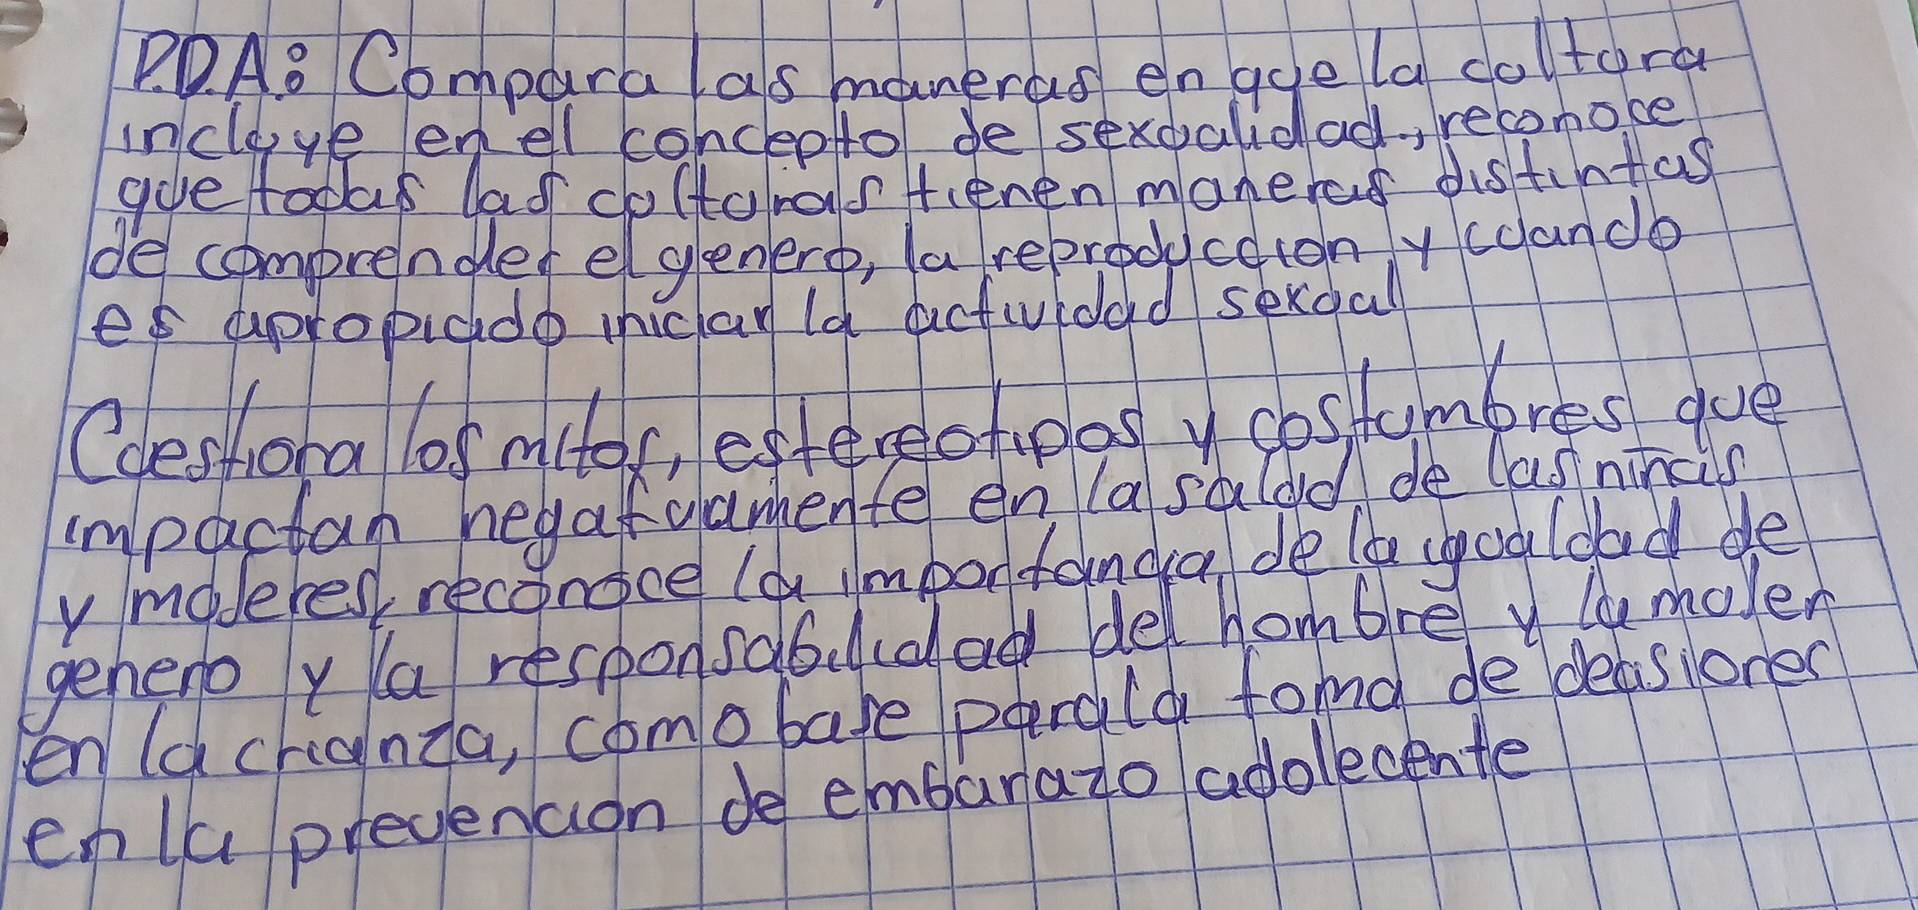 P.D.A: Compara las maneras en que la cultura
incluye en el concepto de sexualidad, reconoce
que todas las culturas tienen maneras distintas
de comprender el genero, la reproduccion, y cuando
es apropiado iniciar la actividad sexual
Cuestiona los mitos, estereotipos y costumbres que
impactan negativamente en la salud de las niñas
y mujeres, reconoce la importancia de la igualdad de
genero y la responsabilidad del hombre y la mujer
en la crianza, como base para la toma de decisiones
en la prevencion de embarazo adolecente